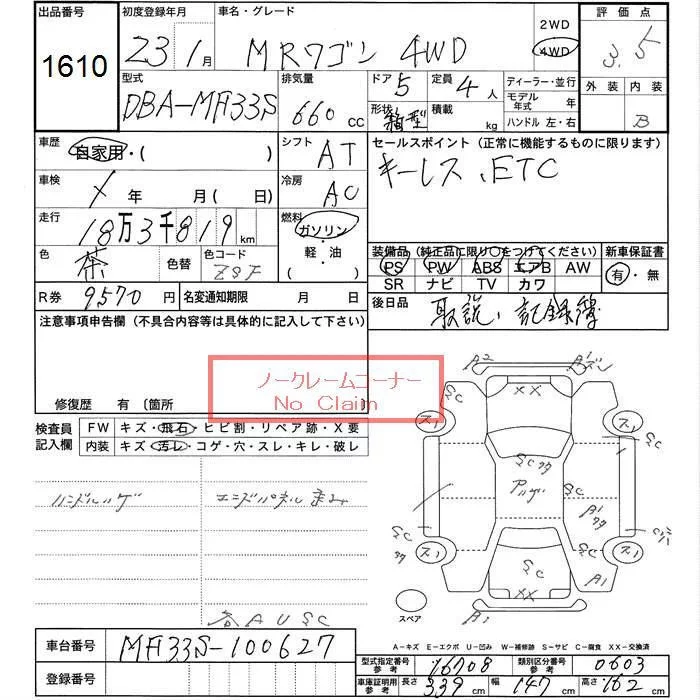 出品番号 1610
初度登録年月 23年 1月
車名・グレード MRワゴン 4WD
2WD 4WD
評価点 3.5
外装 内装 B
型式 DBA-MF33S
排気量 660 cc
ドア 5 定員 4人
形状 箱型 積載 kg
ディーラー・並行
モデル年式 年
ハンドル 左・右
車歴 自家用・( )
シフト AT
セールスポイント (正常に機能するものに限ります)
キーレス、ETC
車検 年 月( 日)
冷房 AC
走行 18万3千819 km
燃料 ガソリン・軽・油 ( )
色 茶 色替 色コード ZSF
装備品 (純正品に限り○をつけてください)
PS PW ABS エアB AW
SR ナビ TV カワ
新車保証書 有・無
R券 9570円 名変通知期限 月 日
後日品 取説、記録簿
注意事項申告欄 (不具合内容等は具体的に記入して下さい)
ノークレームコーナー
No Claim
修復歴 有 (箇所
検査員記入欄
FW キズ・飛石・ヒビ割・リペア跡・X要
内装 キズ・汚レ・コゲ・穴・スレ・キレ・破レ
ハンドルハゲ エンドパネル歪み
各AUSC
A2
XX
SC
ス1 ス1
SC
アルザ
SC
A1
SC
ス1 ス1
SC
XX
SC
A1
スペア
車台番号 MF33S-100627
登録番号
A-キズ E-エクボ U-凹み W-補修跡 S-サビ C-腐食 XX-交換済
型式指定番号 参考 16708 類別区分番号 参考 0603
車庫証明用 参考 長さ 339 cm 幅 147 cm 高さ 162 cm